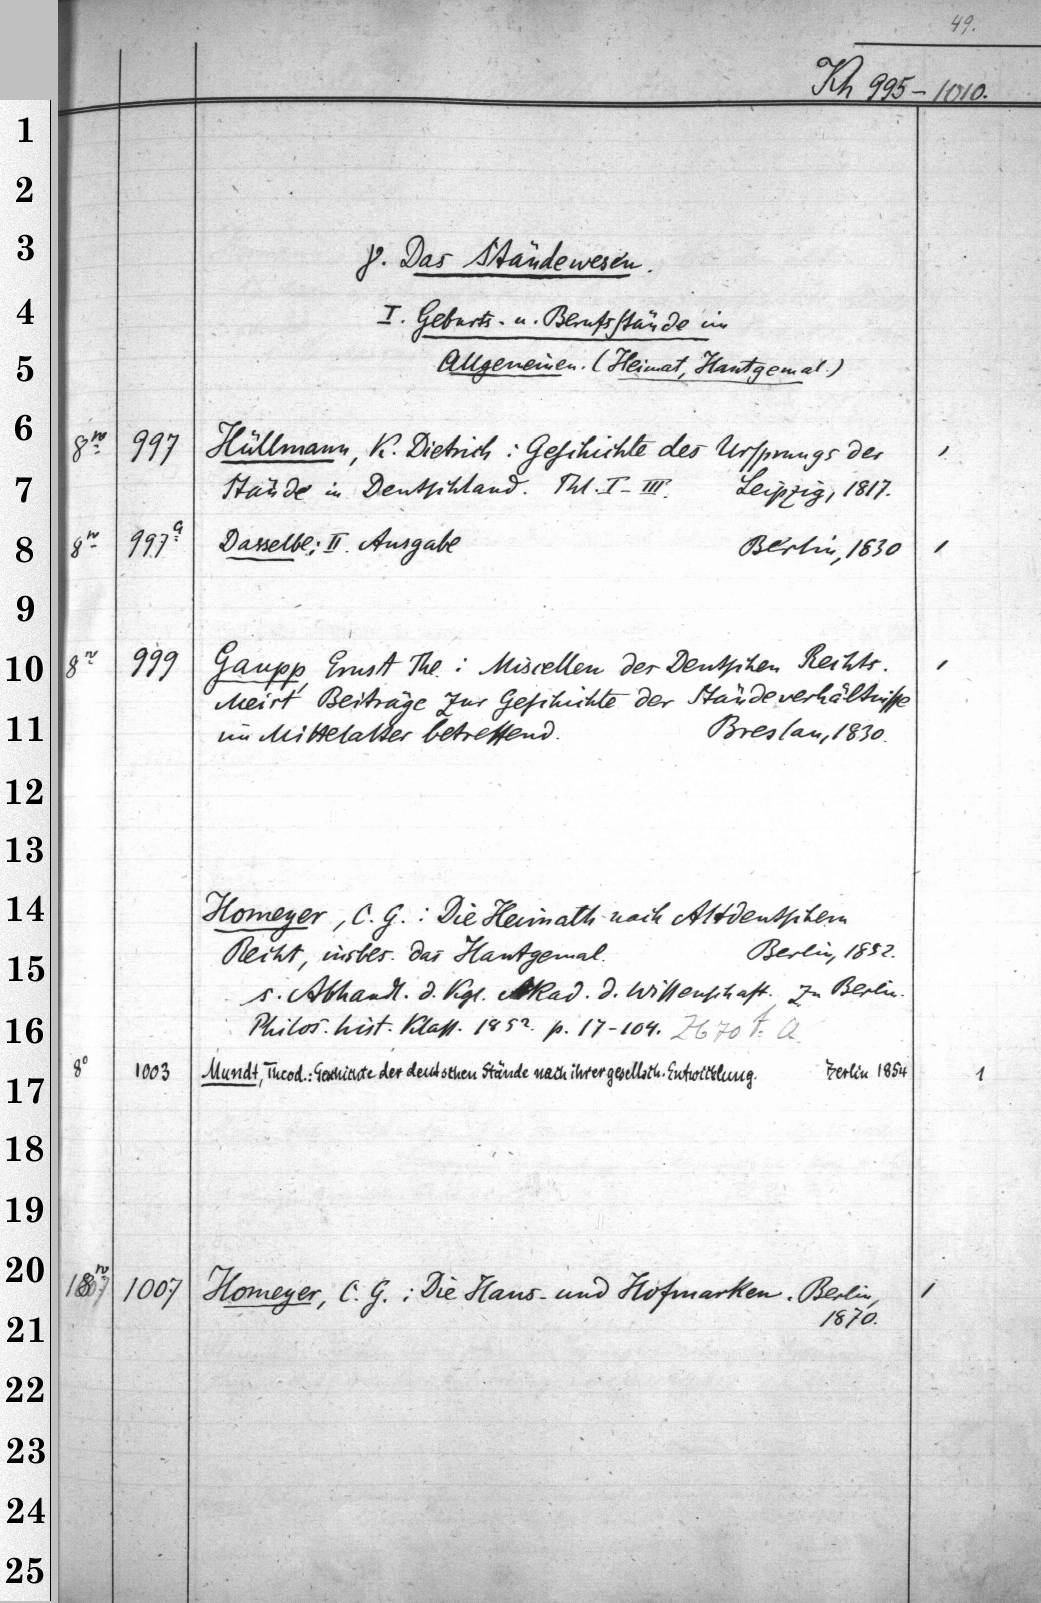 49.
Kh 995-1010.
1
2
3 γ. Das Ständewesen.
4 I. Geburts- u. Berufsstände im
5 Allgemeinen. (Heimat, Hantgemal.)
6 8vo 997 Hüllmann, K. Dietrich: Geschichte des Ursprungs der
7 Stände in Deutschland. Thl. I-III. Leipzig, 1817.
8 8vo 997a Dasselbe; II. Ausgabe Berlin, 1830
9
10 8vo 999 Gaupp, Ernst Th.: Miscellen des Deutschen Rechts.
Meist Beiträge zur Geschichte der Ständeverhältnisse
11 im Mittelalter betreffend. Breslau, 1830.
12
13
14 Homeyer, C. G.: Die Heimath nach Altdeutschem
15 Recht, insbes. das Hantgemal. Berlin, 1852.
s. Abhandl. d. Kgl. Akad. d. Wissenschaft. zu Berlin.
16 Philos. hist. Klass. 1852 p. 17-104.
17 8° 1003 Mundt, Theod.: Geschichte der deutschen Stände nach ihrer gesellsch. Entwicklung. Berlin 1854 1
18
19
20 8vo 1007 Homeyer, C. G.: Die Haus- und Hofmarken. Berlin,
21 1870.
22
23
24
25